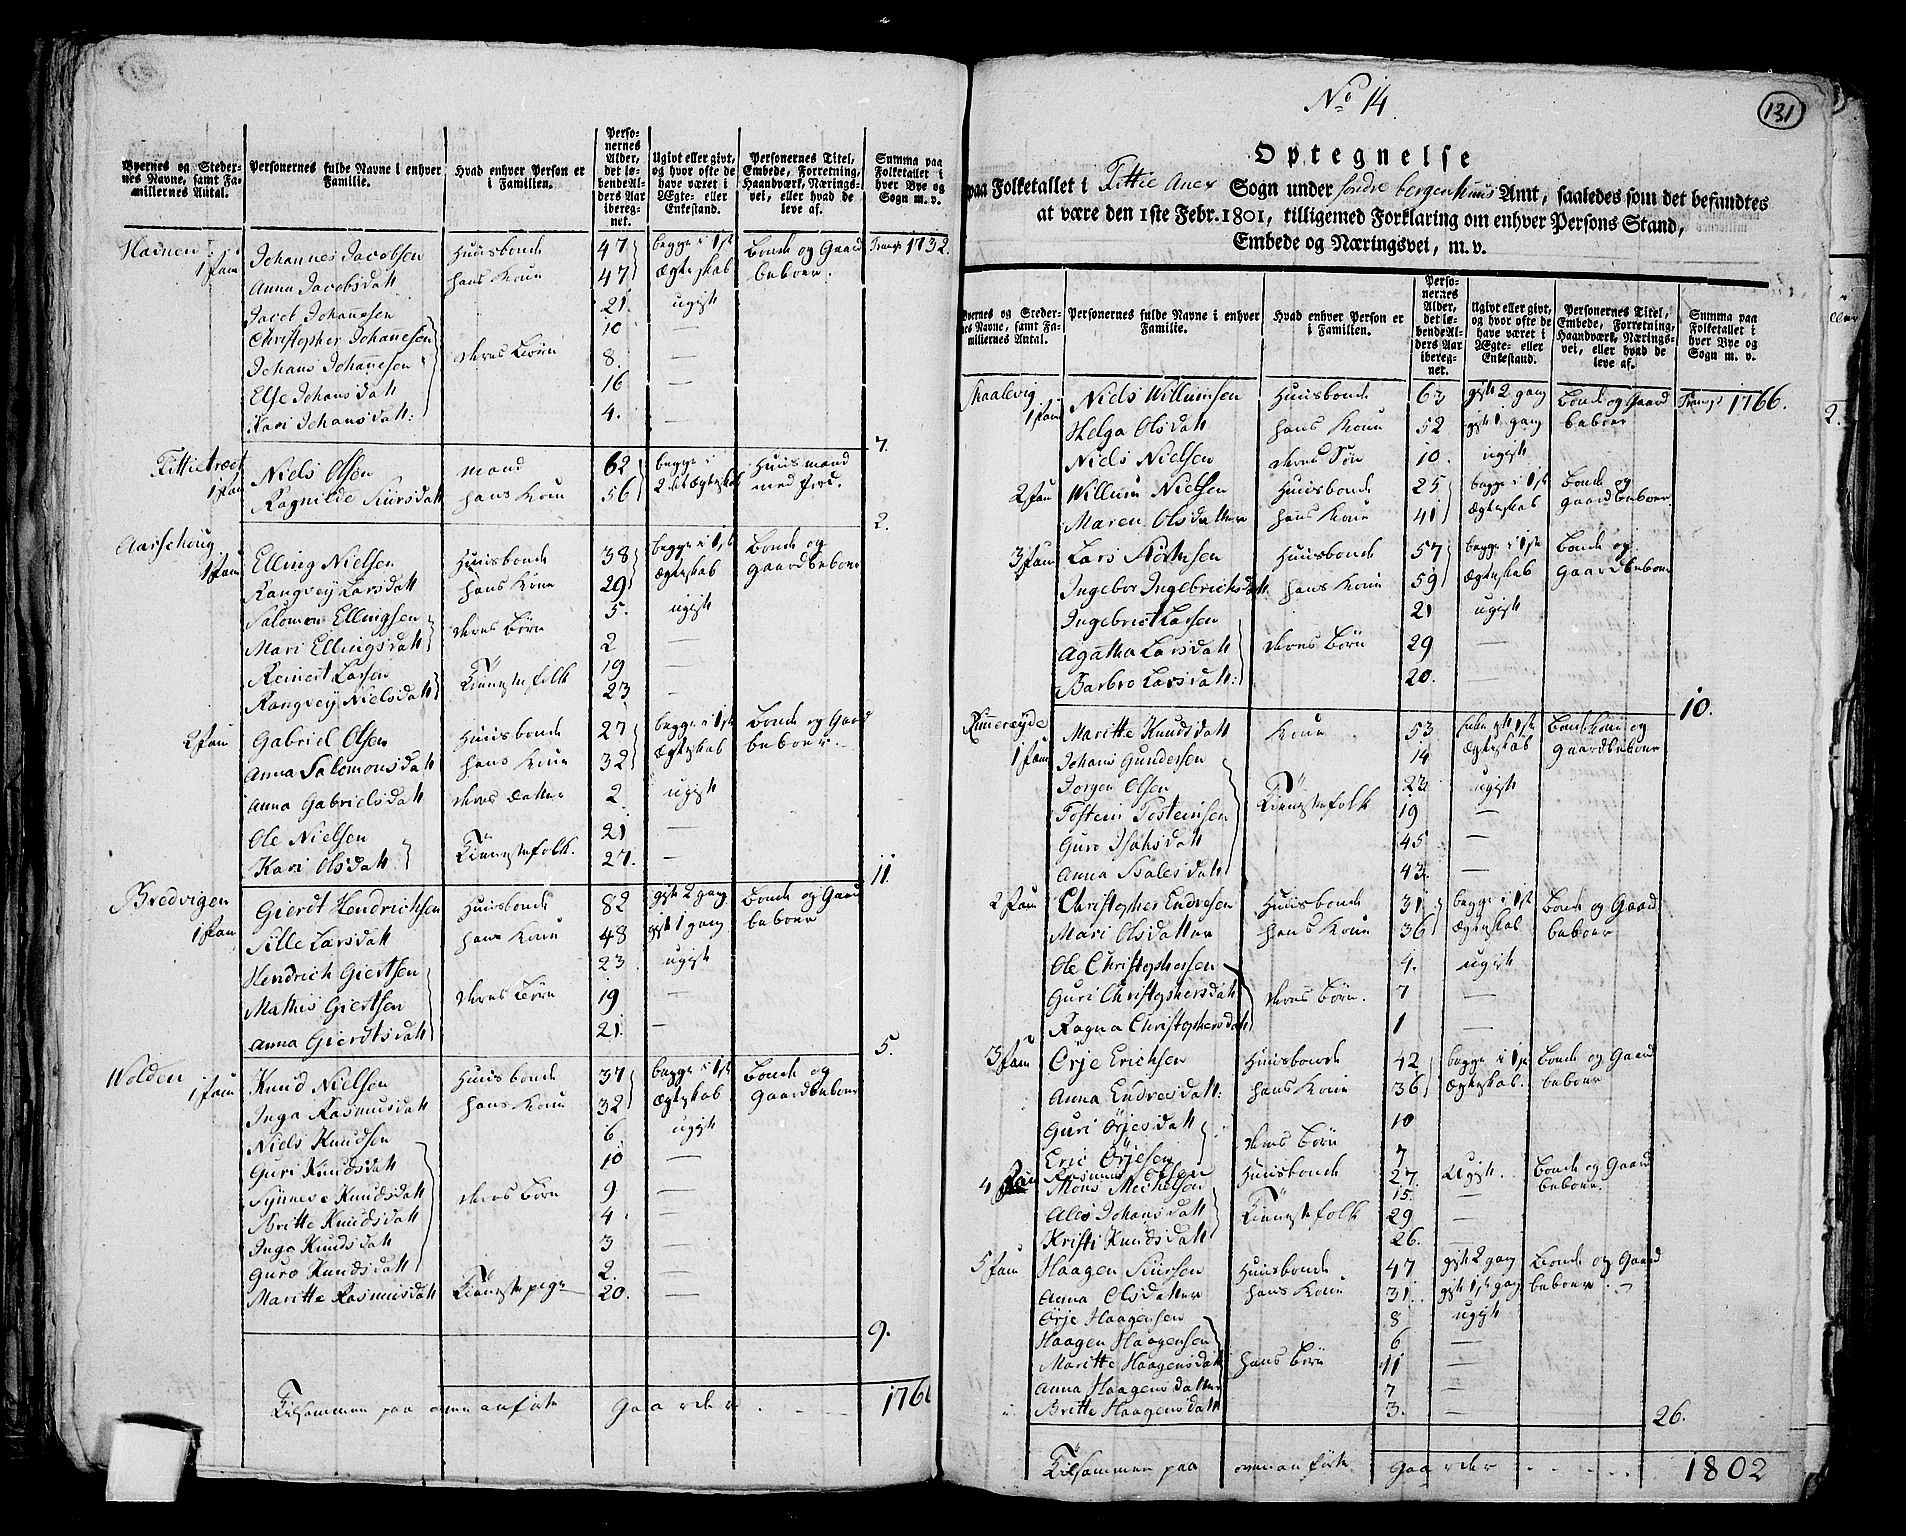 Byernes og Steder- nes Navne, samt Fa- milliernes Antal.
Personernes fulde Navne i enhver Familie.
Hvad enhver Person er i Familien.
Perso- nernes Alder, det lø- bende Al- ders Aar ibereg- net.
Ugivt eller givt, og hvor ofte de have været i Ægte- eller Enkestand.
Personernes Titel, Embede, Forretning, Haandværk, Nærings- vei, eller hvad de leve af.
Summa paa Folketallet i hver Bye og Sogn m. v.
Havnen 1 fam Johannes Jacobsen Huusbonde 47 begge i 1ste Bonde og Gaard Transp 1732.
Anna Jacobsdatt hans Kone 47 Ægteskab beboer.
Jacob Johannesen 21. ugift
Christopher Johannesen 10 —
Johans Johannesen deres Børn 8.
Else Johansdatt 16 —
Kari Johansdatt: 4. —
7.
Tittletræet 1 fam Niels Olsen mand 62 begge i Huusmand
Ragnilde Siursdatt hans Kone 56 2det Ægteskab med jord.
2.
Aarschoug 1 fam Elling Nielsen Huusbonde 38 begge i 1ste Bonde og
Rangvey Larsdatt hans Kone 29 Ægteskab Gaardbeboer
Salomon Ellingsen 5. ugift
Mari Ellingsdatt deres Børn 2 —
Reinert Larsen 19 —
Rangvey Nielsdatt Tiennestefolk 23 —
2 fam Gabriel Olsen Huusbonde 27 begge i 1ste Bonde og Gaard
Anna Salomonsdatt hans Kone 32 Ægteskab beboer.
Anna Gabrielsdatt deres Datter 2 ugift
Ole Nielsen 21 —
Kari Olsdatt Tiennestefolk. 27. —
11
Bredvigen 1 fam Gierdt Hendrichsen Huusbonde 82 gift 2 gang Bonde og Gaard
Sille Larsdatt hans Kone 48 gift 1 gang beboer
Hendrich Giertsen 23 ugift
Mathis Giertsen deres Børn 19 —
Anna Gierdtsdatt 21. —
5.
Wolden 1 fam Knud Nielsen Huusbonde 37 begge i 1ste Bonde og
Inga Rasmusdatt hans Kone 32 Ægteskab Gaardbeboer
Niels Knudsen 6 ugift
Guri Knudsdatt 10 —
Synneve Knudsdatt deres Børn 9. —
Britte Knudsdatt 4. —
Inga Knudsdatt 3 —
Guro Knudsdatt 2. —
Maritte Rasmusdatt Tiennestepige 20. —
9.
Tilsammen paa ovenanførte Gaarder 1766
No 14
131
Optegnelse
paa Folketallet i Tittle Anex Sogn under søndre bergenhuus Amt, saaledes som det befandtes
at være den 1ste Febr. 1801, tilligemed Forklaring om enhver Persons Stand,
Embede og Næringsvei, m. v.
Byernes og Steder- nes Navne, samt Fa- milliernes Antal.
Personernes fulde Navne i enhver Familie.
Hvad enhver Person er i Familien.
Perso- nernes Alder, det lø- bende Al- ders Aar ibereg- net.
Ugivt eller givt, og hvor ofte de have været i Ægte- eller Enkestand.
Personernes Titel, Embede, Forretning, Haandværk, Nærings- vei, eller hvad de leve af.
Summa paa Folketallet i hver Bye og Sogn m. v.
Skaalevig 1 fam Niels Willumsen Huusbonde 63 gift 2 gang Bonde og Gaard Transp 1766.
Helga Olsdatt hans Kone 52 gift 1 gang beboer
Niels Nielsen deres Søn 10. ugift
2 fam Willum Nielsen Huusbonde 25 begge i 1ste Bonde og
Maren Olsdatter hans Kone 41 Ægteskab gaardbeboer
3 fam Lars Huusbonde 57 begge i 1ste Bonde og
Ingebor Ingebrichtsdatt hans Kone 59 Ægteskab Gaardbeboer
Ingebrict Larsen 21 ugift
Agatha Larsdatt deres Børn 29 —
Barbro Larsdatt: 20. —
10.
1 fam Maritte Knudsdatt Kone 53 1ste Bondekone og
Johans Gundersen 14 Ægteskab Gaardbeboer
Jorgen Olsen 22 ugift
Tostein Tosteinsen Tiennestefolk 19 —
Guro Isaksdatt 45 —
Anna Salesdatt 43. —
2 fam Christopher Endresen Huusbonde 31 begge i 1ste Bonde og Gaard
Mari Olsdatter hans Kone 36 Ægteskab beboer
Ole Christophersen 4. ugift
Guri Christophersdatt deres Børn. 7 —
Ragna Christophersdatt 1 —
3 fam Ørje Erichsen Huusbonde 42 begge i 1ste Bonde og Gaard
Anna Endresdatt: hans Kone 36 Ægteskab. beboer
Guri Ørjesdatt 10
Eric Ørjesen deres Børn 7
4 fam Rasmus Olsen Huusbonde 27. Ugift. Bonde og Gaard
Mons Michelsen 15. — beboer.
Ales Johansdatt Tiennestefolk 29 —
Kristi Knudsdatt 26. —
5 fam Haagen Siursen Huusbonde 47 gift 2 gang Bonde og Gaard
Anna Olsdatter hans Kone 31. gift 1ste gang beboer
Ørje Haagensen 8 ugift
Haagen Haagensen 6 —
Maritte Haagensdatt hans Børn 11 —
Anna Haagensdatter 7 —
Britte Haagensdatt 3. —
26.
Tilsammen paa ovenanførte Gaarder 1802